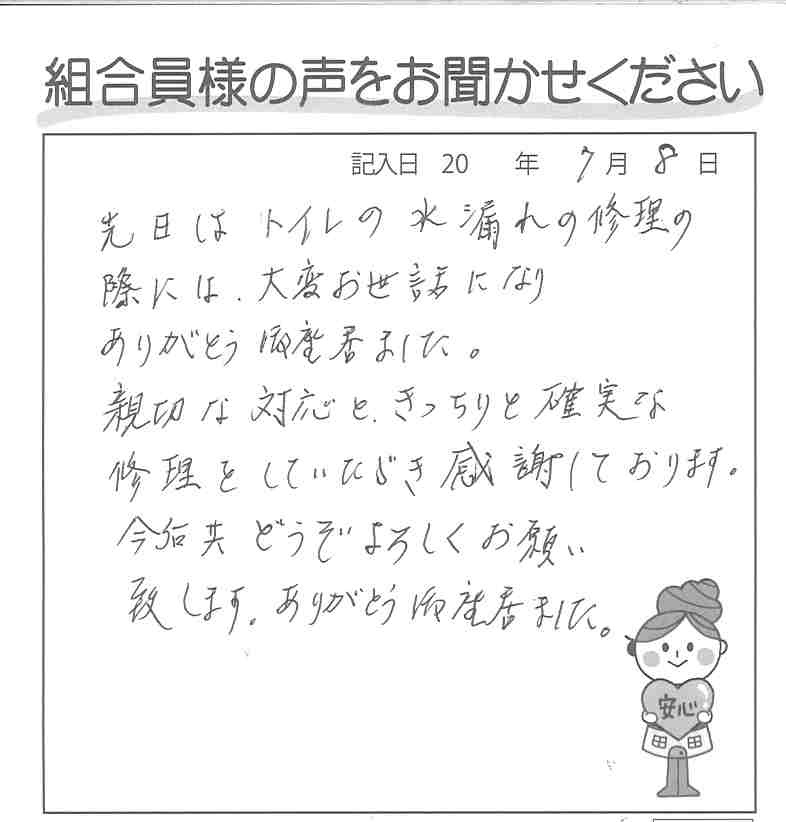 組合員様の声をお聞かせください
記入日 20 年 7月 8日
先日は トイレの 水漏れの修理の
際には、大変お世話になり
ありがとう御座居ました。
親切な対応と、きっちりと確実な
修理をしていただき感謝しております。
今后共 どうぞよろしくお願い
致します。ありがとう御座居ました。
安心